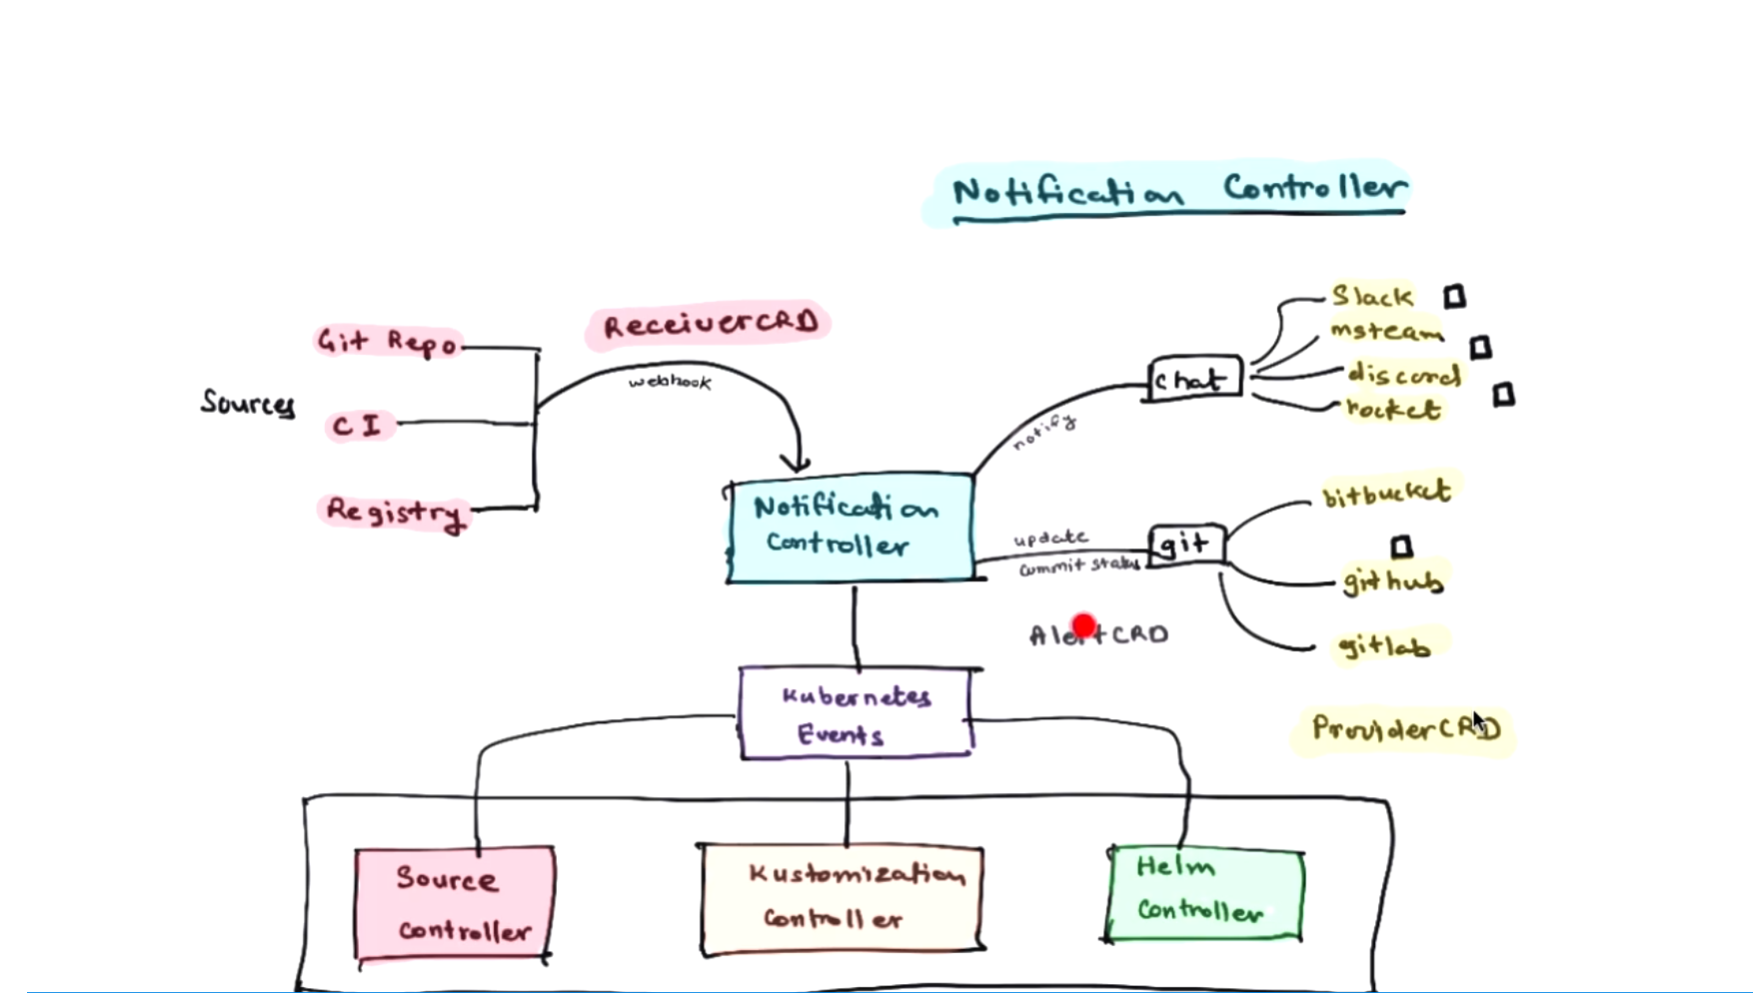 Notification Controller
Sources
Git Repo
CI
Registry
ReceiverCRD
webhook
Notification
Controller
notify
chat
Slack
msteam
discord
rocket
update
commit status
git
bitbucket
github
gitlab
AlertCRD
ProviderCRD
Kubernetes
Events
Source
Controller
Kustomization
Controller
Helm
Controller